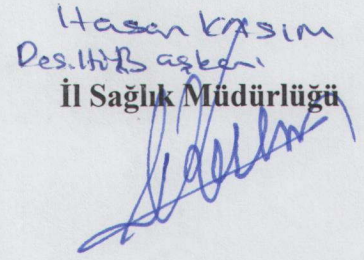 Hasan KASIM
Des. Hiz. Başkanı
İl Sağlık Müdürlüğü